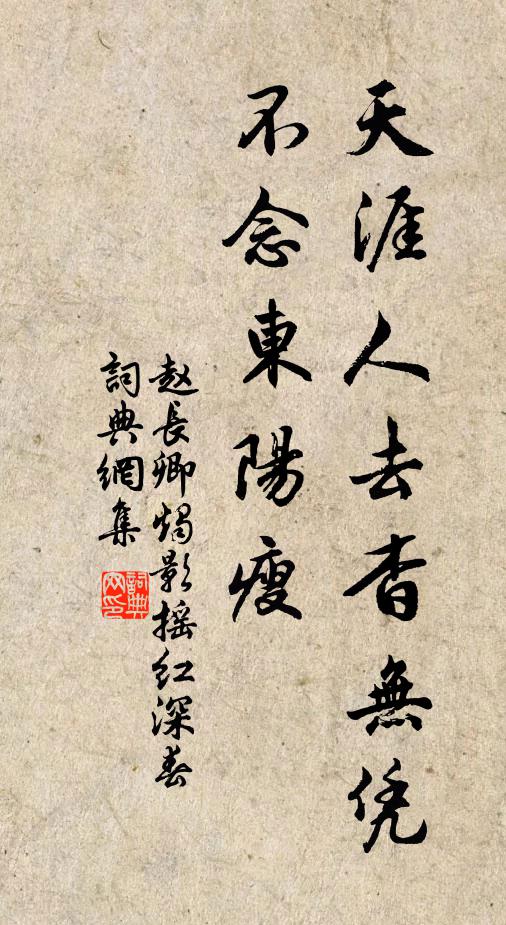 天涯人去杳無凭
不念東陽瘦
赵長卿燭影摇红深春
詞典網集
詞典网印